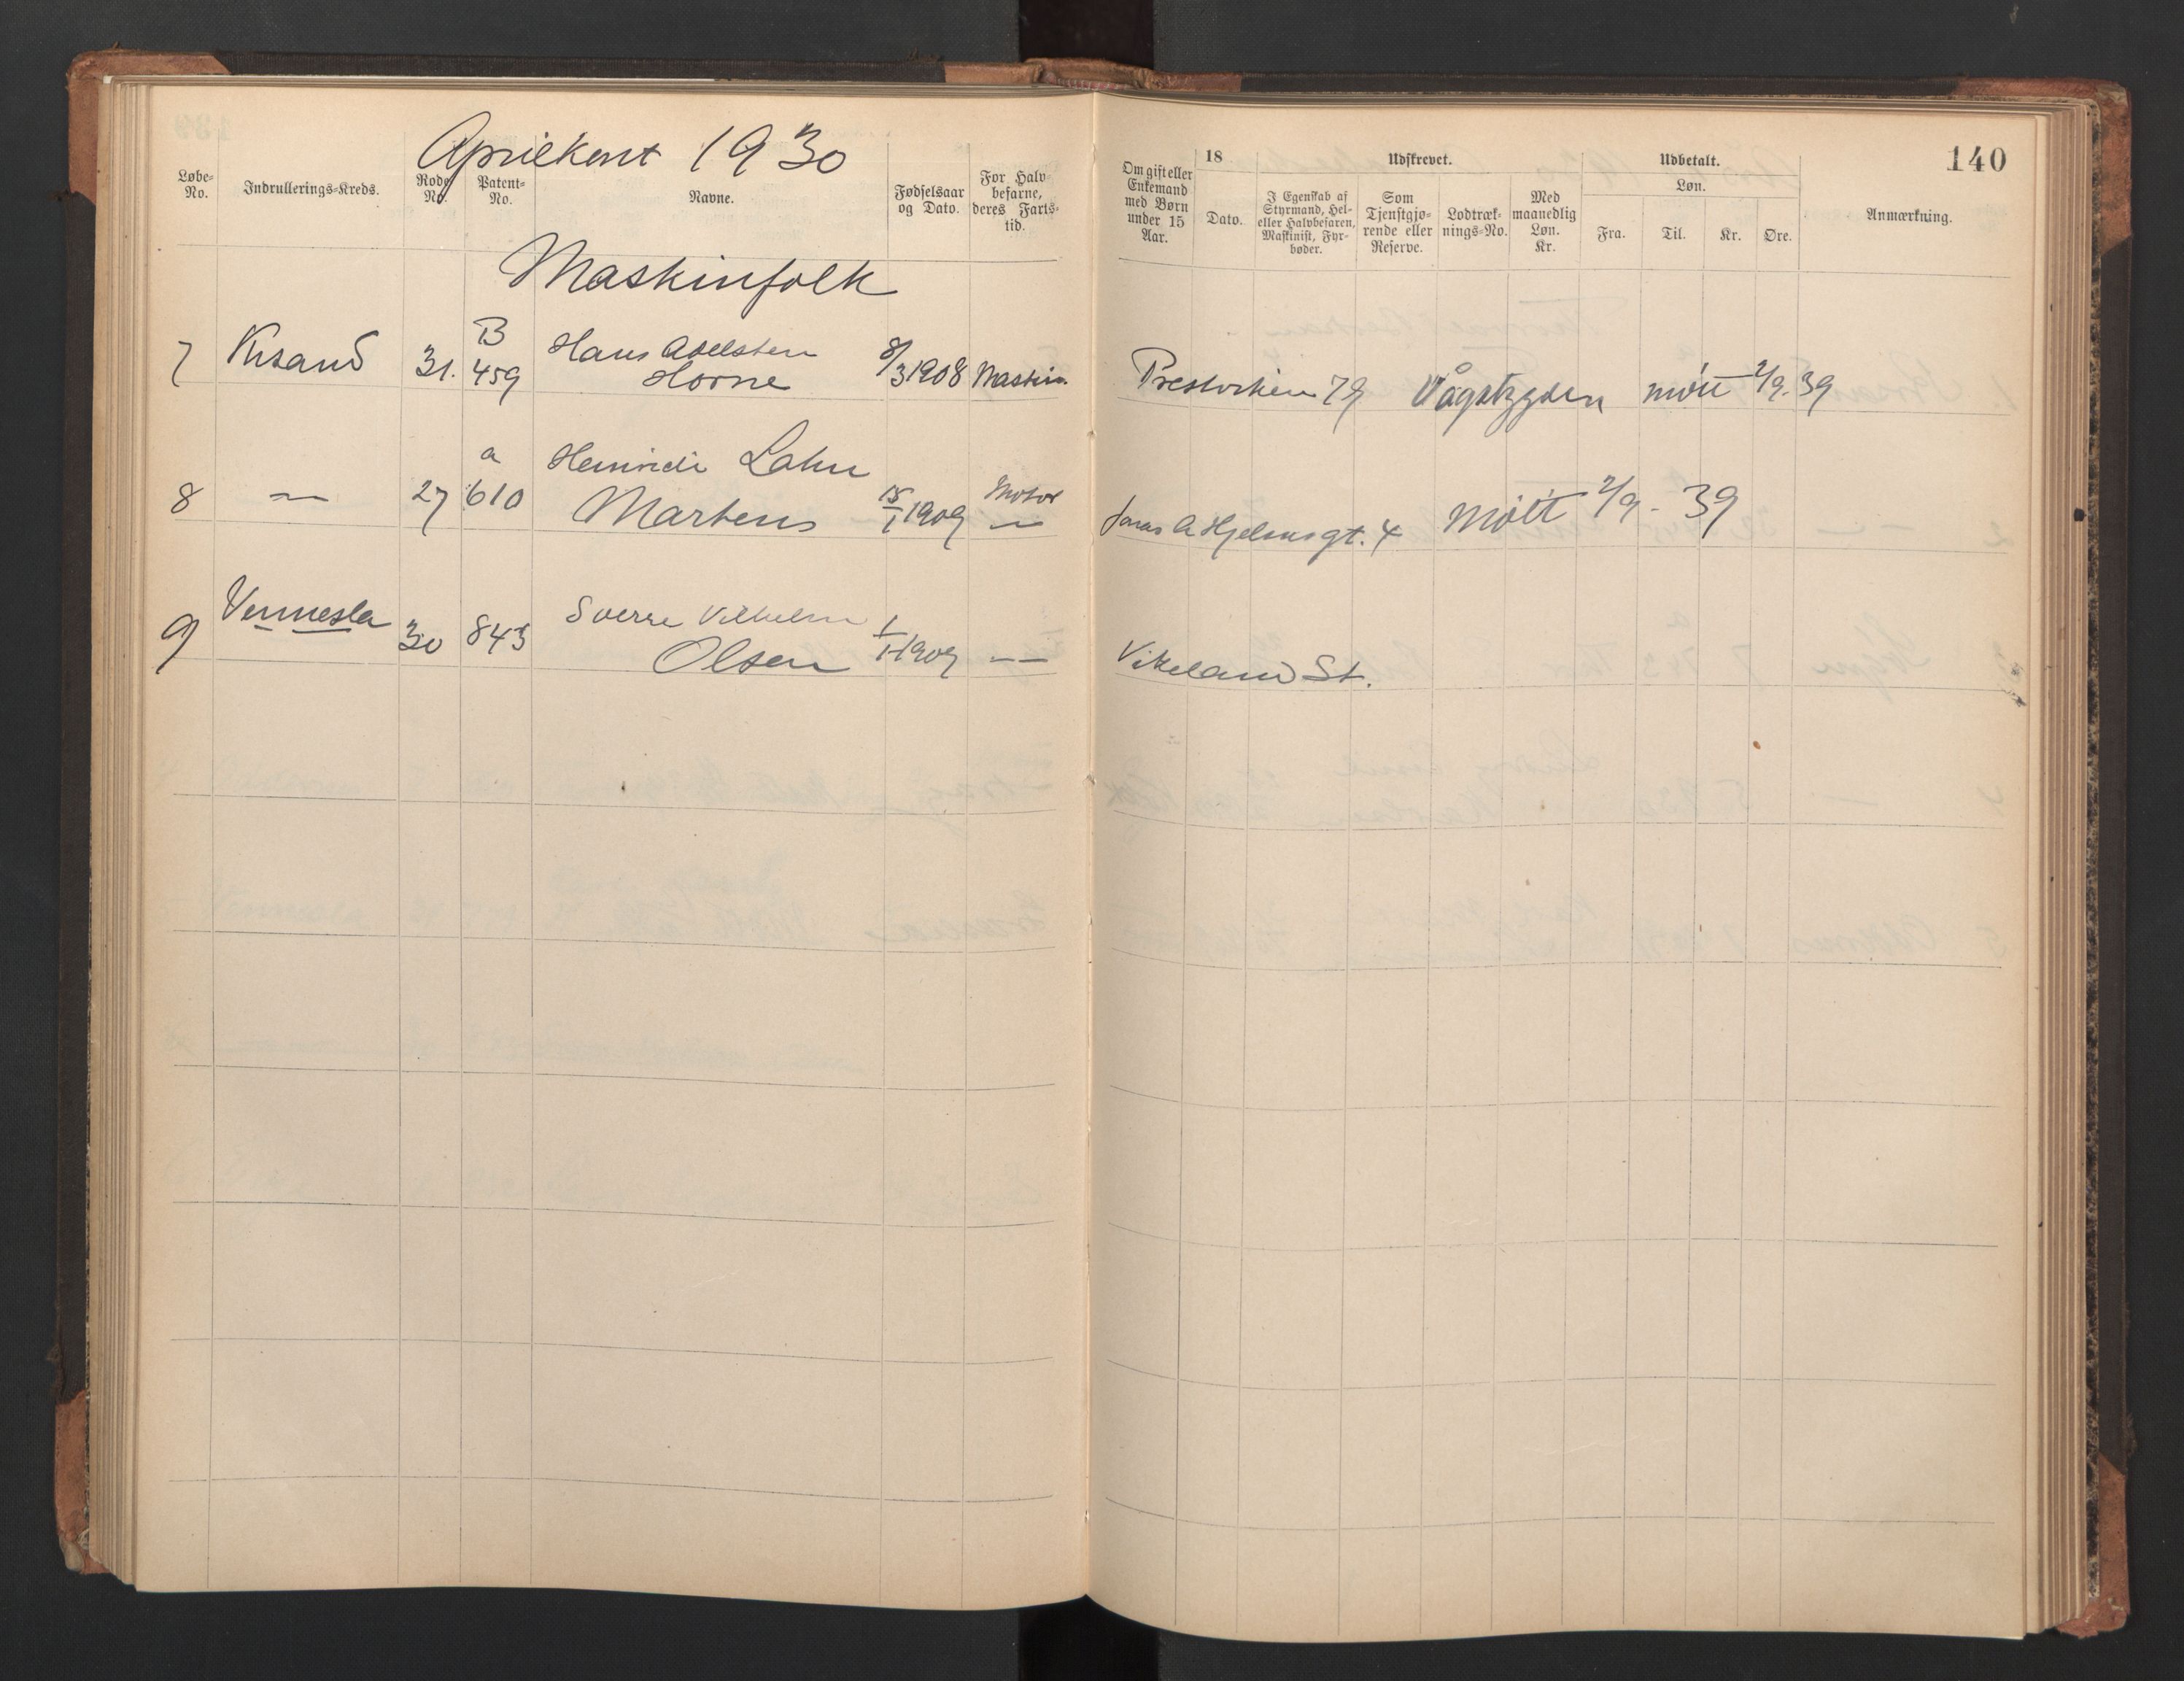 Aprilkont 1930
140
Løbe-No. Indrullerings-Kreds. Rode No. Patent-No. Navne. Fødselsaar og Dato. For Halvbefarne, deres Fartstid.
Om gift eller Enkemand med Børn under 15 Aar. 18 Dato. Udskrevet. I Egenskab af Styrmand, Hel- eller Halvbefaren, Maskinist, Fyrbøder. Som Tjenstgjørende eller Reserve. Lodtræknings-No. Med maanedlig Løn. Kr. Udbetalt. Løn. Fra. Til. Kr. Øre. Anmærkning.
Maskinfolk
7 Krsand 31. B 459 Hans Adelsten Horne 8/3 1908 Maskin. 79 Vågsbygden møtt 2/9. 39
8 — 27 a 610 Lahn Martens 15/1 1909 Motor — Jonas A Hjelmsgt. 4 Møtt 2/9 - 39
9 Vennesla 30 843 Sverre Vilhelm Olsen 1909 — Vikeland St.